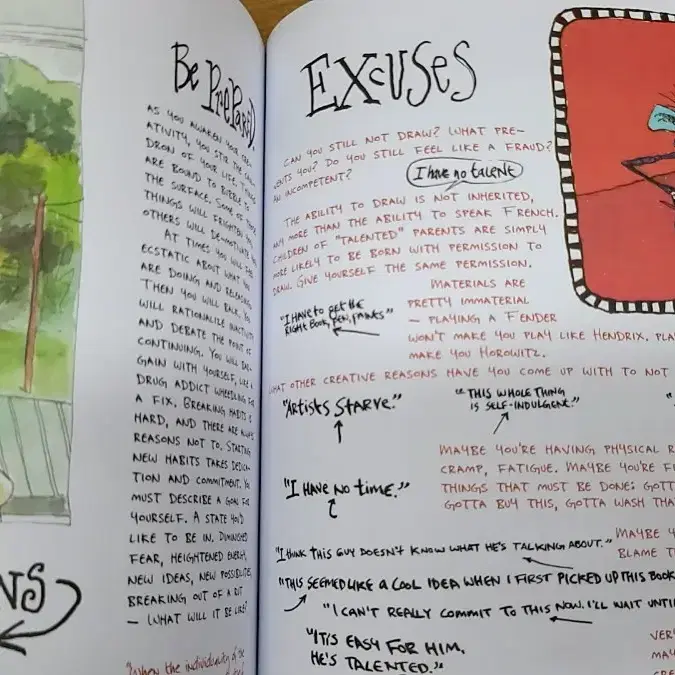 Be PrePared.
AS YOU AWAKEN YOUR CRE-
ATIVITY, YOU STIR THE CAUL-
DRON OF YOUR LIFE. THINGS
ARE BOUND TO BUBBLE TO
THE SURFACE. SOME OF THESE
THINGS WILL FRIGHTEN YOU,
OTHERS WILL DEMOTIVATE YOU.
AT TIMES YOU WILL FEEL
ECSTATIC ABOUT WHAT YOU
ARE DOING AND RELEASING.
THEN YOU WILL BALK. YOU
WILL RATIONALIZE INACTIVITY
AND DEBATE THE POINT OF
CONTINUING. YOU WILL BAR-
GAIN WITH YOURSELF, LIKE A
DRUG ADDICT WHEEDLING FOR
A FIX. BREAKING HABITS IS
HARD, AND THERE ARE ALWAYS
REASONS NOT TO. STARTING
NEW HABITS TAKES DEDICA-
TION AND COMMITMENT. YOU
MUST DESCRIBE A GOAL FOR
YOURSELF. A STATE YOU'D
LIKE TO BE IN. DIMINISHED
FEAR, HEIGHTENED ENERGY,
NEW IDEAS, NEW POSSIBILITIES,
BREAKING OUT OF A RUT
— WHAT WILL IT BE LIKE?
"When the individuality of the
NS
EXCUSES
CAN YOU STILL NOT DRAW? WHAT PRE-
VENTS YOU? DO YOU STILL FEEL LIKE A FRAUD?
AN INCOMPETENT?
I have no talent
THE ABILITY TO DRAW IS NOT INHERITED,
ANY MORE THAN THE ABILITY TO SPEAK FRENCH.
CHILDREN OF "TALENTED" PARENTS ARE SIMPLY
MORE LIKELY TO BE BORN WITH PERMISSION TO
DRAW. GIVE YOURSELF THE SAME PERMISSION.
"I HAVE TO GET THE
RIGHT BOOK, PEN, PAINTS"
MATERIALS ARE
PRETTY IMMATERIAL
— PLAYING A FENDER
WON'T MAKE YOU PLAY LIKE HENDRIX,
MAKE YOU HOROWITZ.
WHAT OTHER CREATIVE REASONS HAVE YOU COME UP WITH TO NOT
"ARTISTS STARVE."
"THIS WHOLE THING
IS SELF-INDULGENT."
MAYBE YOU'RE HAVING PHYSICAL
CRAMP, FATIGUE. MAYBE YOU'RE
THINGS THAT MUST BE DONE: GOTT
GOTTA BUY THIS, GOTTA WASH THA
"I HAVE NO TIME."
"I THINK THIS GUY DOESN'T KNOW WHAT HE'S TALKING ABOUT."
MAYBE
BLAME
"THIS SEEMED LIKE A COOL IDEA WHEN I FIRST PICKED UP THIS BOOK
"I CAN'T REALLY COMMIT TO THIS NOW. I'LL WAIT UNTI
"IT'S EASY FOR HIM,
HE'S TALENTED."
VER
MA
CRE